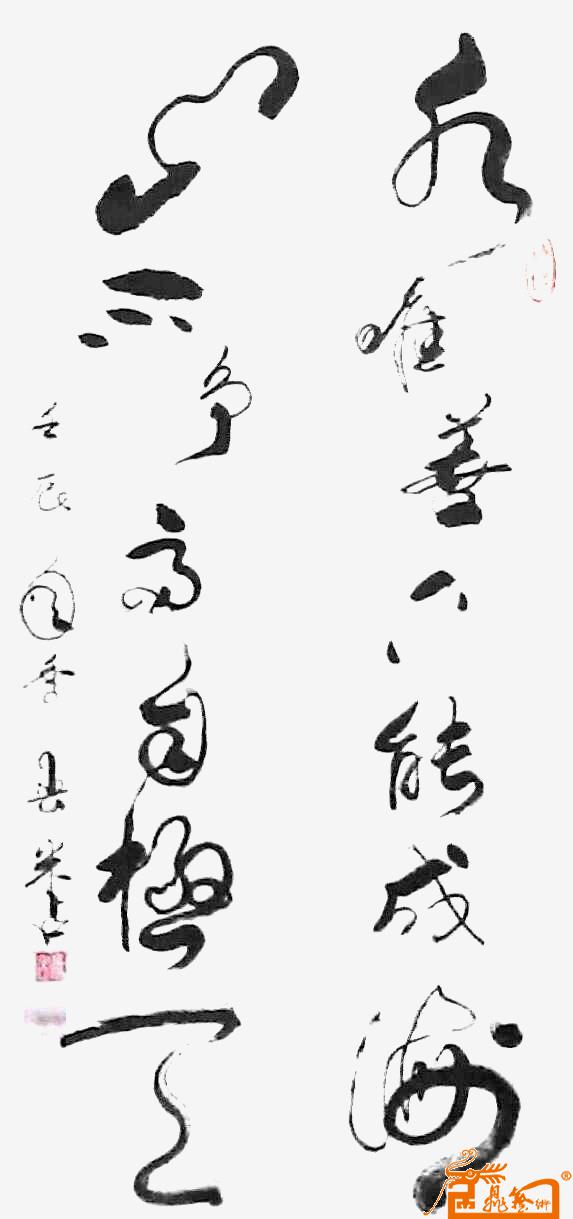 水唯善下能成海
山不争高自极天
壬辰